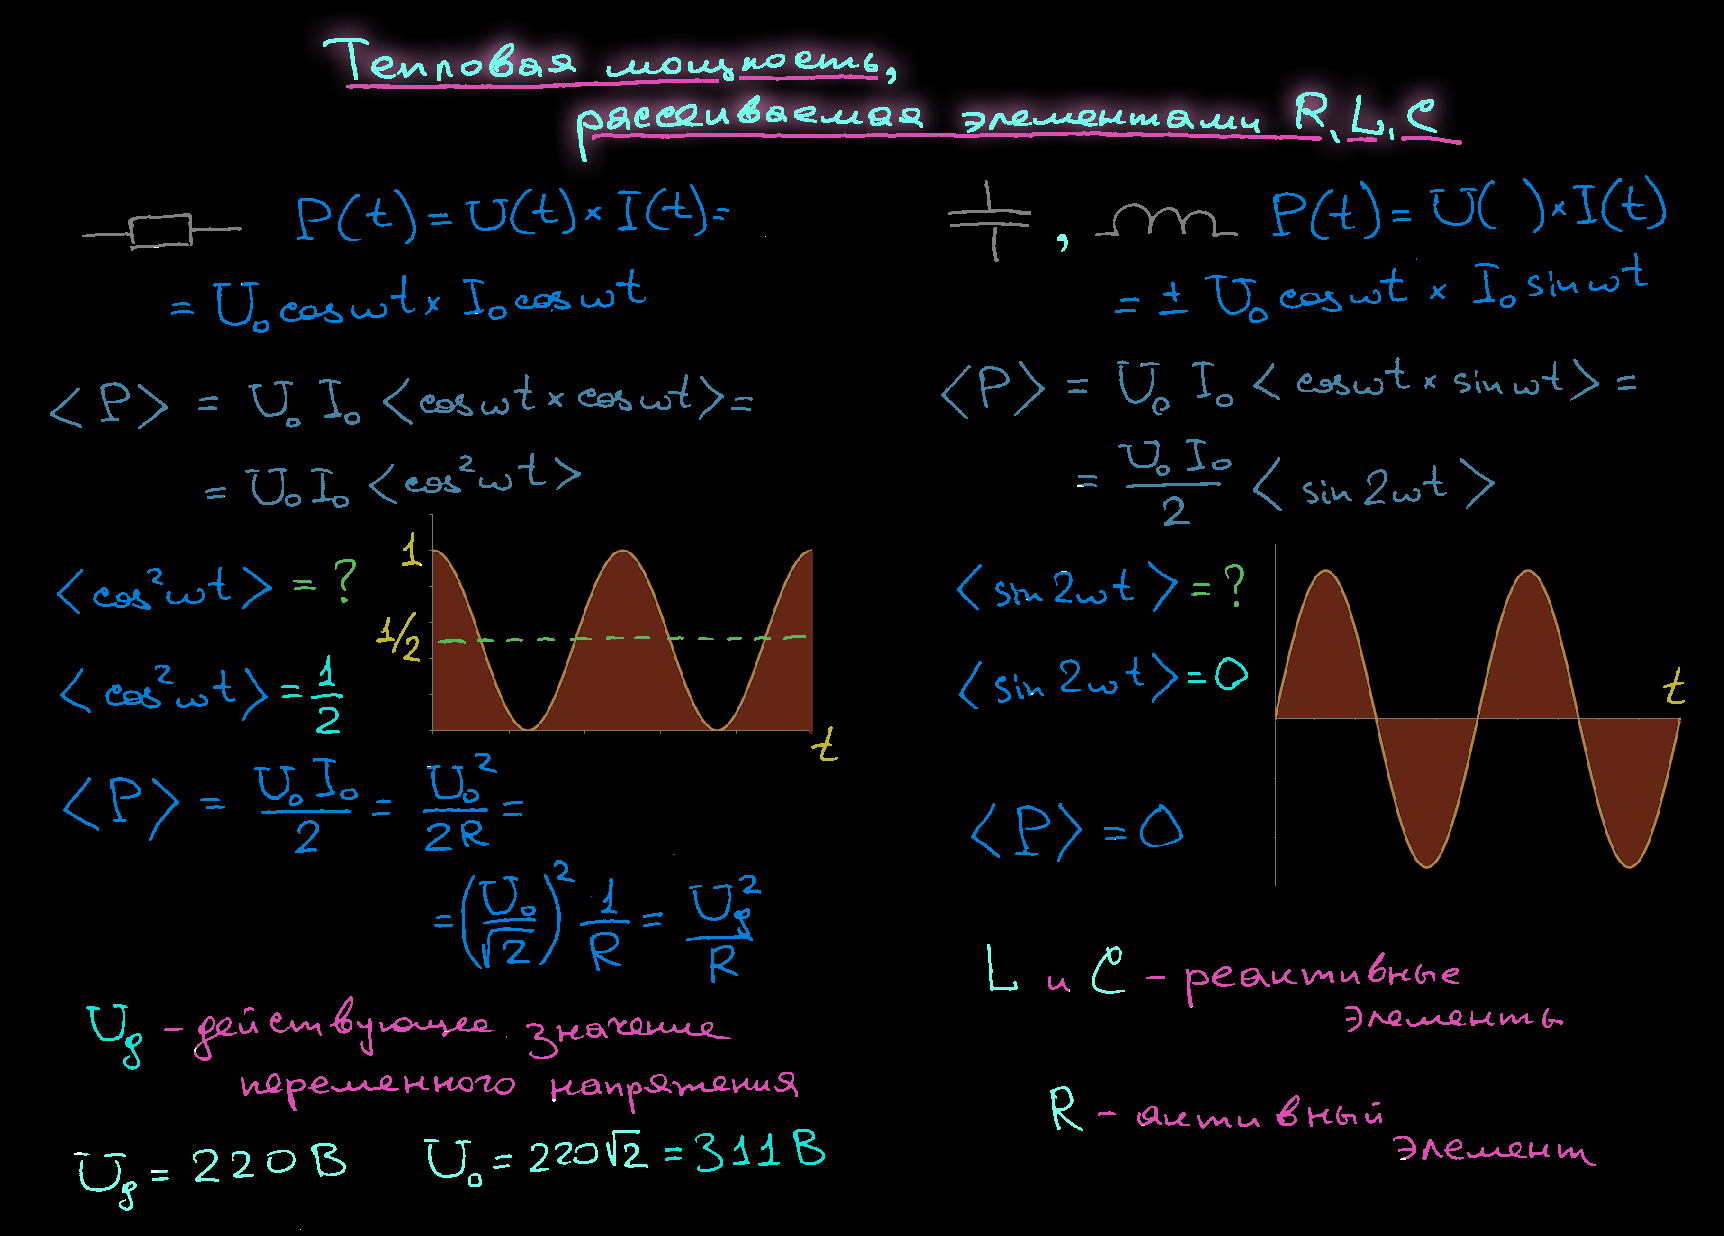 Тепловая мощность,
рассеиваемая элементами R, L, C
P(t) = U(t) × I(t) =
= U₀ cos ωt × I₀ cos ωt
⟨P⟩ = U₀ I₀ ⟨cos ωt × cos ωt⟩ =
= U₀ I₀ ⟨cos² ωt⟩
⟨cos² ωt⟩ = ?
⟨cos² ωt⟩ = 1/2
1
1/2
t
⟨P⟩ = U₀ I₀ / 2 = U₀² / 2R =
= (U₀ / √2)² 1/R = U_g² / R
U_g - действующее значение
переменного напряжения
U_g = 220 В U₀ = 220√2 = 311 В
, P(t) = U( ) × I(t)
= ± U₀ cos ωt × I₀ sin ωt
⟨P⟩ = U₀ I₀ ⟨cos ωt × sin ωt⟩ =
= U₀ I₀ / 2 ⟨sin 2ωt⟩
⟨sin 2ωt⟩ = ?
⟨sin 2ωt⟩ = 0
t
⟨P⟩ = 0
L и C - реактивные
элементы
R - активный
элемент